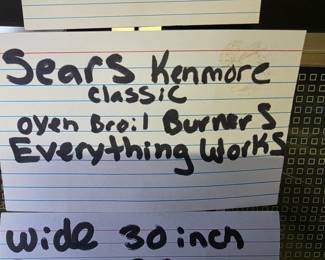 Sears Kenmore
Classic
oven Broil Burners
Everything Works
Wide 30 inch